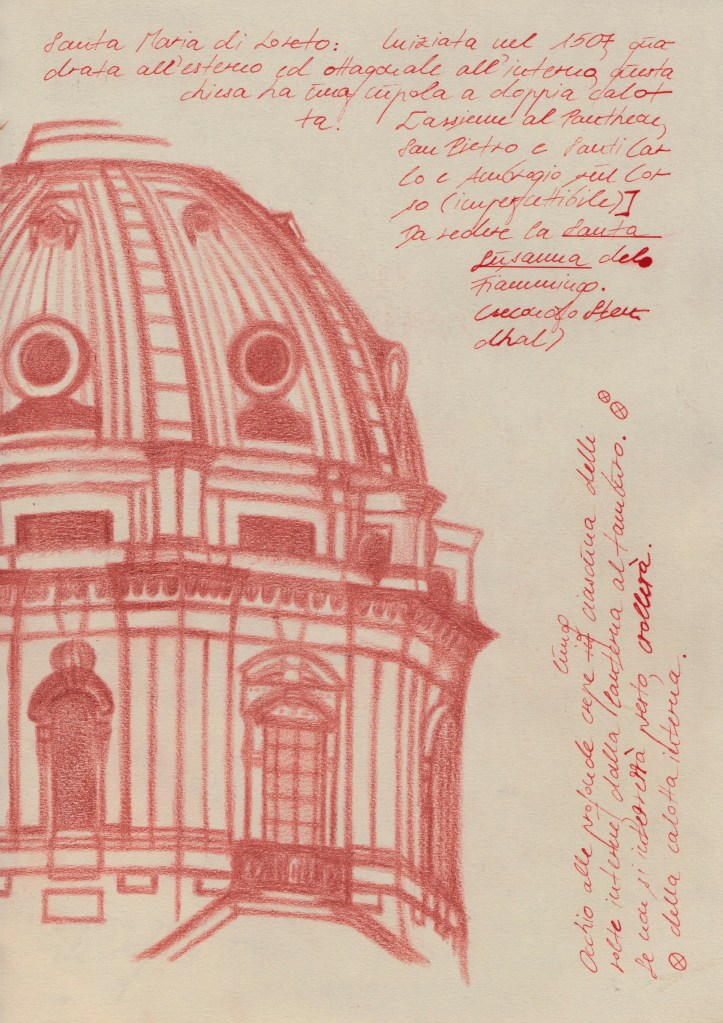 Santa Maria di Loreto: Iniziata nel 1507, qua-
drata all'esterno ed ottagonale all'interno, questa
chiesa ha una cupola a doppia calot-
ta. [assieme al Pantheon,
San Pietro e Santi Car-
lo e Ambrogio sul Cor-
so (imperfettibile)]
Da vedere la Santa
Susanna del
Fiammingo.
(secondo Sten-
dhal)
Occhio alle profonde crepe lungo ciascuna delle
volte interne, dalla lanterna al tamburo. ⊗
Se non si interverrà presto, crollerà.
⊗ della calotta interna.